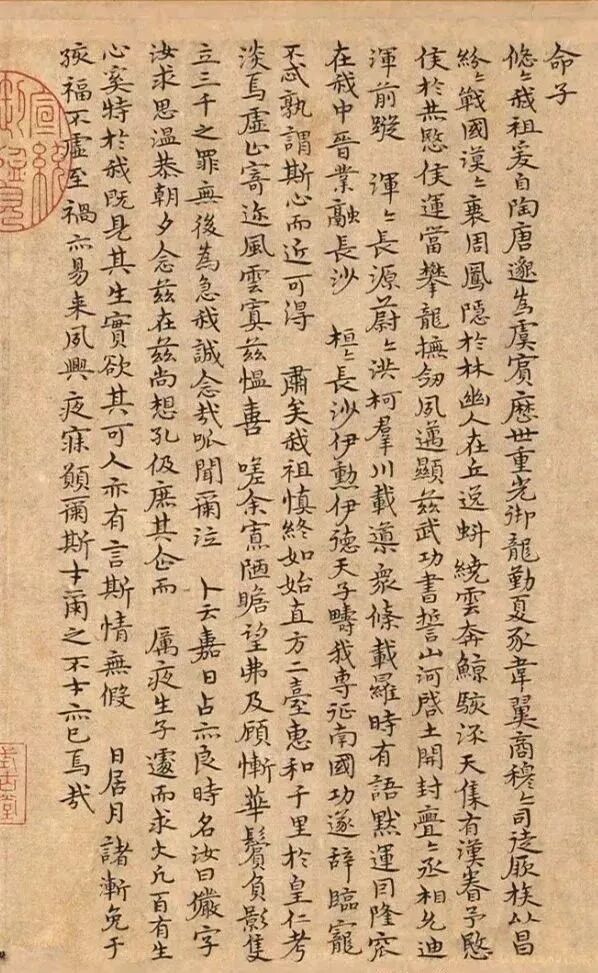 命子
悠〻我祖爰自陶唐邈爲虞賓歷世重光御龍勤夏豕韋翼商穆〻司徒厥族以昌
紛〻戰國漠〻衰周鳳隱於林幽人在丘逸虯繞雲奔鯨駭流天集有漢眷予愍
侯於赫愍侯運當攀龍撫劒夙邁顯茲武功書誓山河啓土開封亹〻丞相允迪
渾前蹤 渾〻長源蔚〻洪柯羣川載導衆條載羅時有語默運因隆窊
在我中晉業融長沙 桓〻長沙伊勳伊德天子疇我專征南國功遂辭臨寵
不忒孰謂斯心而近可得 肅矣我祖慎終如始直方二臺惠和千里於皇仁考
淡焉虛止寄迹風雲寘茲慍喜 嗟余寡陋瞻望弗及顧慚華鬢負影隻
立三千之罪無後爲急我誠念哉呱聞爾泣 卜云嘉日占亦良時名汝曰儼字
汝求思溫恭朝夕念茲在茲尚想孔伋庶其企而 厲夜生子遽而求火凡百有生
心奚特於我既見其生實欲其可人亦有言斯情無假 日居月諸漸免于
孩福不虛至禍亦易來夙興夜寐願爾斯才爾之不才亦已焉哉
宣統
式古堂